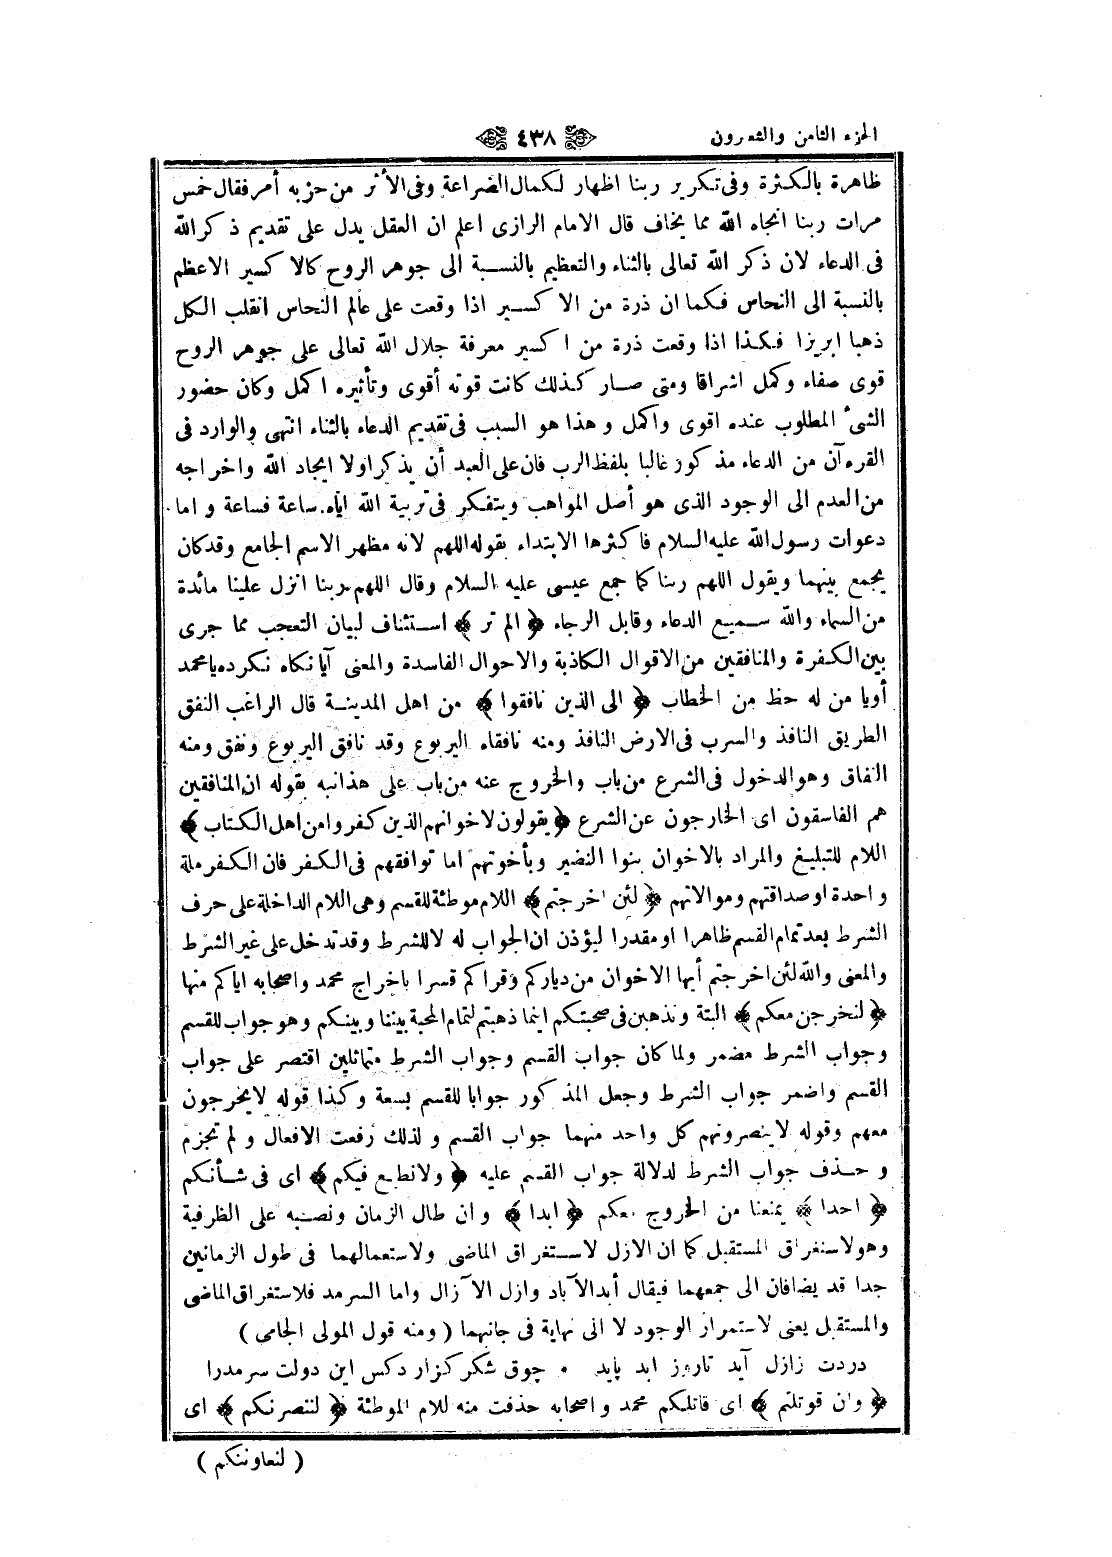 الجزء الثامن والعشرون
٤٣٨
ظاهرة بالكثرة وفى تكرير ربنا اظهار لكمال الضراعة وفى الأثر من حزبه أمر فقال خمس
مرات ربنا انجاه الله مما يخاف قال الامام الرازى اعلم ان العقل يدل على تقديم ذكر الله
فى الدعاء لان ذكر الله تعالى بالثناء والتعظيم بالنسبة الى جوهر الروح كالاكسير الاعظم
بالنسبة الى النحاس فكما ان ذرة من الاكسير اذا وقعت على عالم النحاس انقلب الكل
ذهبا ابريزا فكذا اذا وقعت ذرة من اكسير معرفة جلال الله تعالى على جوهر الروح
قوى صفاء وكمل اشراقا ومتى صار كذلك كانت قوته أقوى وتأثيره اكمل وكان حضور
الشئ المطلوب عنده اقوى واكمل وهذا هو السبب فى تقديم الدعاء بالثناء انتهى والوارد فى
القرءآن من الدعاء مذكور غالبا بلفظ الرب فان على العبد أن يذكر اولا ايجاد الله واخراجه
من العدم الى الوجود الذى هو أصل المواهب ويتفكر فى تربية الله اياه ساعة فساعة واما
دعوات رسول الله عليه السلام فاكثرها الابتداء بقوله اللهم لانه مظهر الاسم الجامع وقدكان
يجمع بينهما ويقول اللهم ربنا كما جمع عيسى عليه السلام وقال اللهم ربنا انزل علينا مائدة
من السماء والله سميع الدعاء وقابل الرجاء ﴿ الم تر ﴾ استئناف لبيان التعجب مما جرى
بين الكفرة والمنافقين من الاقوال الكاذبة والاحوال الفاسدة والمعنى آيا نكاه نكرده يا محمد
أويا من له حظ من الخطاب ﴿ الى الذين نافقوا ﴾ من اهل المدينة قال الراغب النفق
الطريق النافذ والسرب فى الارض النافذ ومنه نافقاء اليربوع وقد نافق اليربوع ونفق ومنه
النفاق وهو الدخول فى الشرع من باب والخروج عنه من باب على هذا نبه بقوله ان المنافقين
هم الفاسقون اى الخارجون عن الشرع ﴿ يقولون لاخوانهم الذين كفروا من اهل الكتاب ﴾
اللام للتبليغ والمراد بالاخوان بنوا النضير وبأخوتهم اما توافقهم فى الكفر فان الكفر ملة
واحدة او صداقتهم وموالاتهم ﴿ لئن اخرجتم ﴾ اللام موطئة للقسم وهى اللام الداخلة على حرف
الشرط بعد تمام القسم ظاهرا او مقدرا ليؤذن ان الجواب له لا للشرط وقد تدخل على غير الشرط
والمعنى والله لئن اخرجتم أيها الاخوان من دياركم وقراكم قسرا باخراج محمد واصحابه اياكم منها
﴿ لنخرجن معكم ﴾ البتة ونذهبن فى صحبتكم اينما ذهبتم لتمام المحبة بيننا وبينكم وهو جواب للقسم
وجواب الشرط مضمر ولما كان جواب القسم وجواب الشرط متماثلين اقتصر على جواب
القسم واضمر جواب الشرط وجعل المذكور جوابا للقسم بسعة وكذا قوله لا يخرجون
معهم وقوله لاينصرونهم كل واحد منهما جواب القسم ولذلك رفعت الافعال ولم تجزم
وحذف جواب الشرط لدلالة جواب القسم عليه ﴿ ولانطيع فيكم ﴾ اى فى شأنكم
﴿ احدا ﴾ يمنعنا من الخروج معكم ﴿ ابدا ﴾ وان طال الزمان ونصبه على الظرفية
وهو لاستغراق المستقبل كما ان الازل لاستغراق الماضى ولاستعمالهما فى طول الزمانين
جدا قد يضافان الى جمعهما فيقال أبد الآباد وازل الآزال واما السرمد فلاستغراق الماضى
والمستقبل يعنى لاستمرار الوجود لا الى نهاية فى جانبهما ( ومنه قول المولى الجامى )
دردت زازل آيد تاروز ابد پايد • چون شكر كزارد كس اين دولت سرمدرا
﴿ وان قوتلتم ﴾ اى قاتلكم محمد واصحابه حذفت منه للام الموطئة ﴿ لننصرنكم ﴾ اى
( لنعاوننكم )